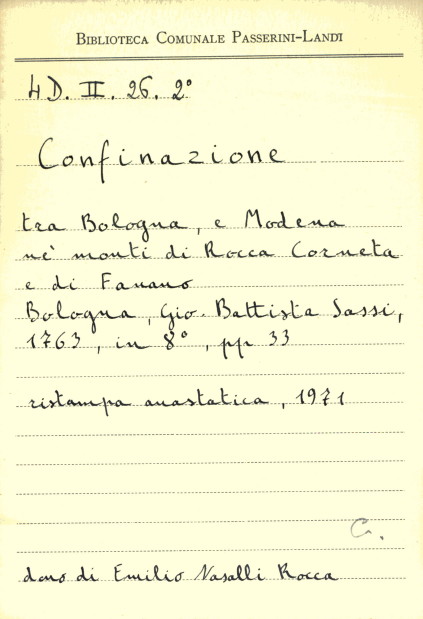 BIBLIOTECA COMUNALE PASSERINI-LANDI
4D. II. 26. 2°
Confinazione
tra Bologna, e Modena
ne' monti di Rocca Corneta
e di Fanano
Bologna, Gio. Battista Sassi,
1763, in 8°, pp 33
ristampa anastatica, 1971
C.
dono di Emilio Nasalli Rocca